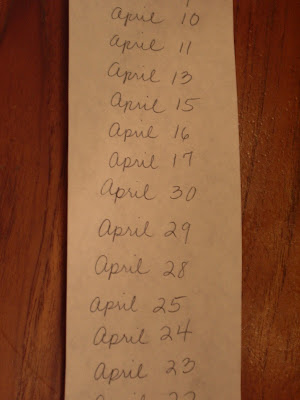 April 10
April 11
April 13
April 15
April 16
April 17
April 30
April 29
April 28
April 25
April 24
April 23